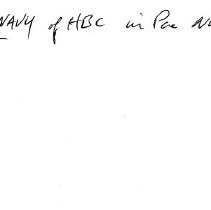 NAVY of HBC in Pac No